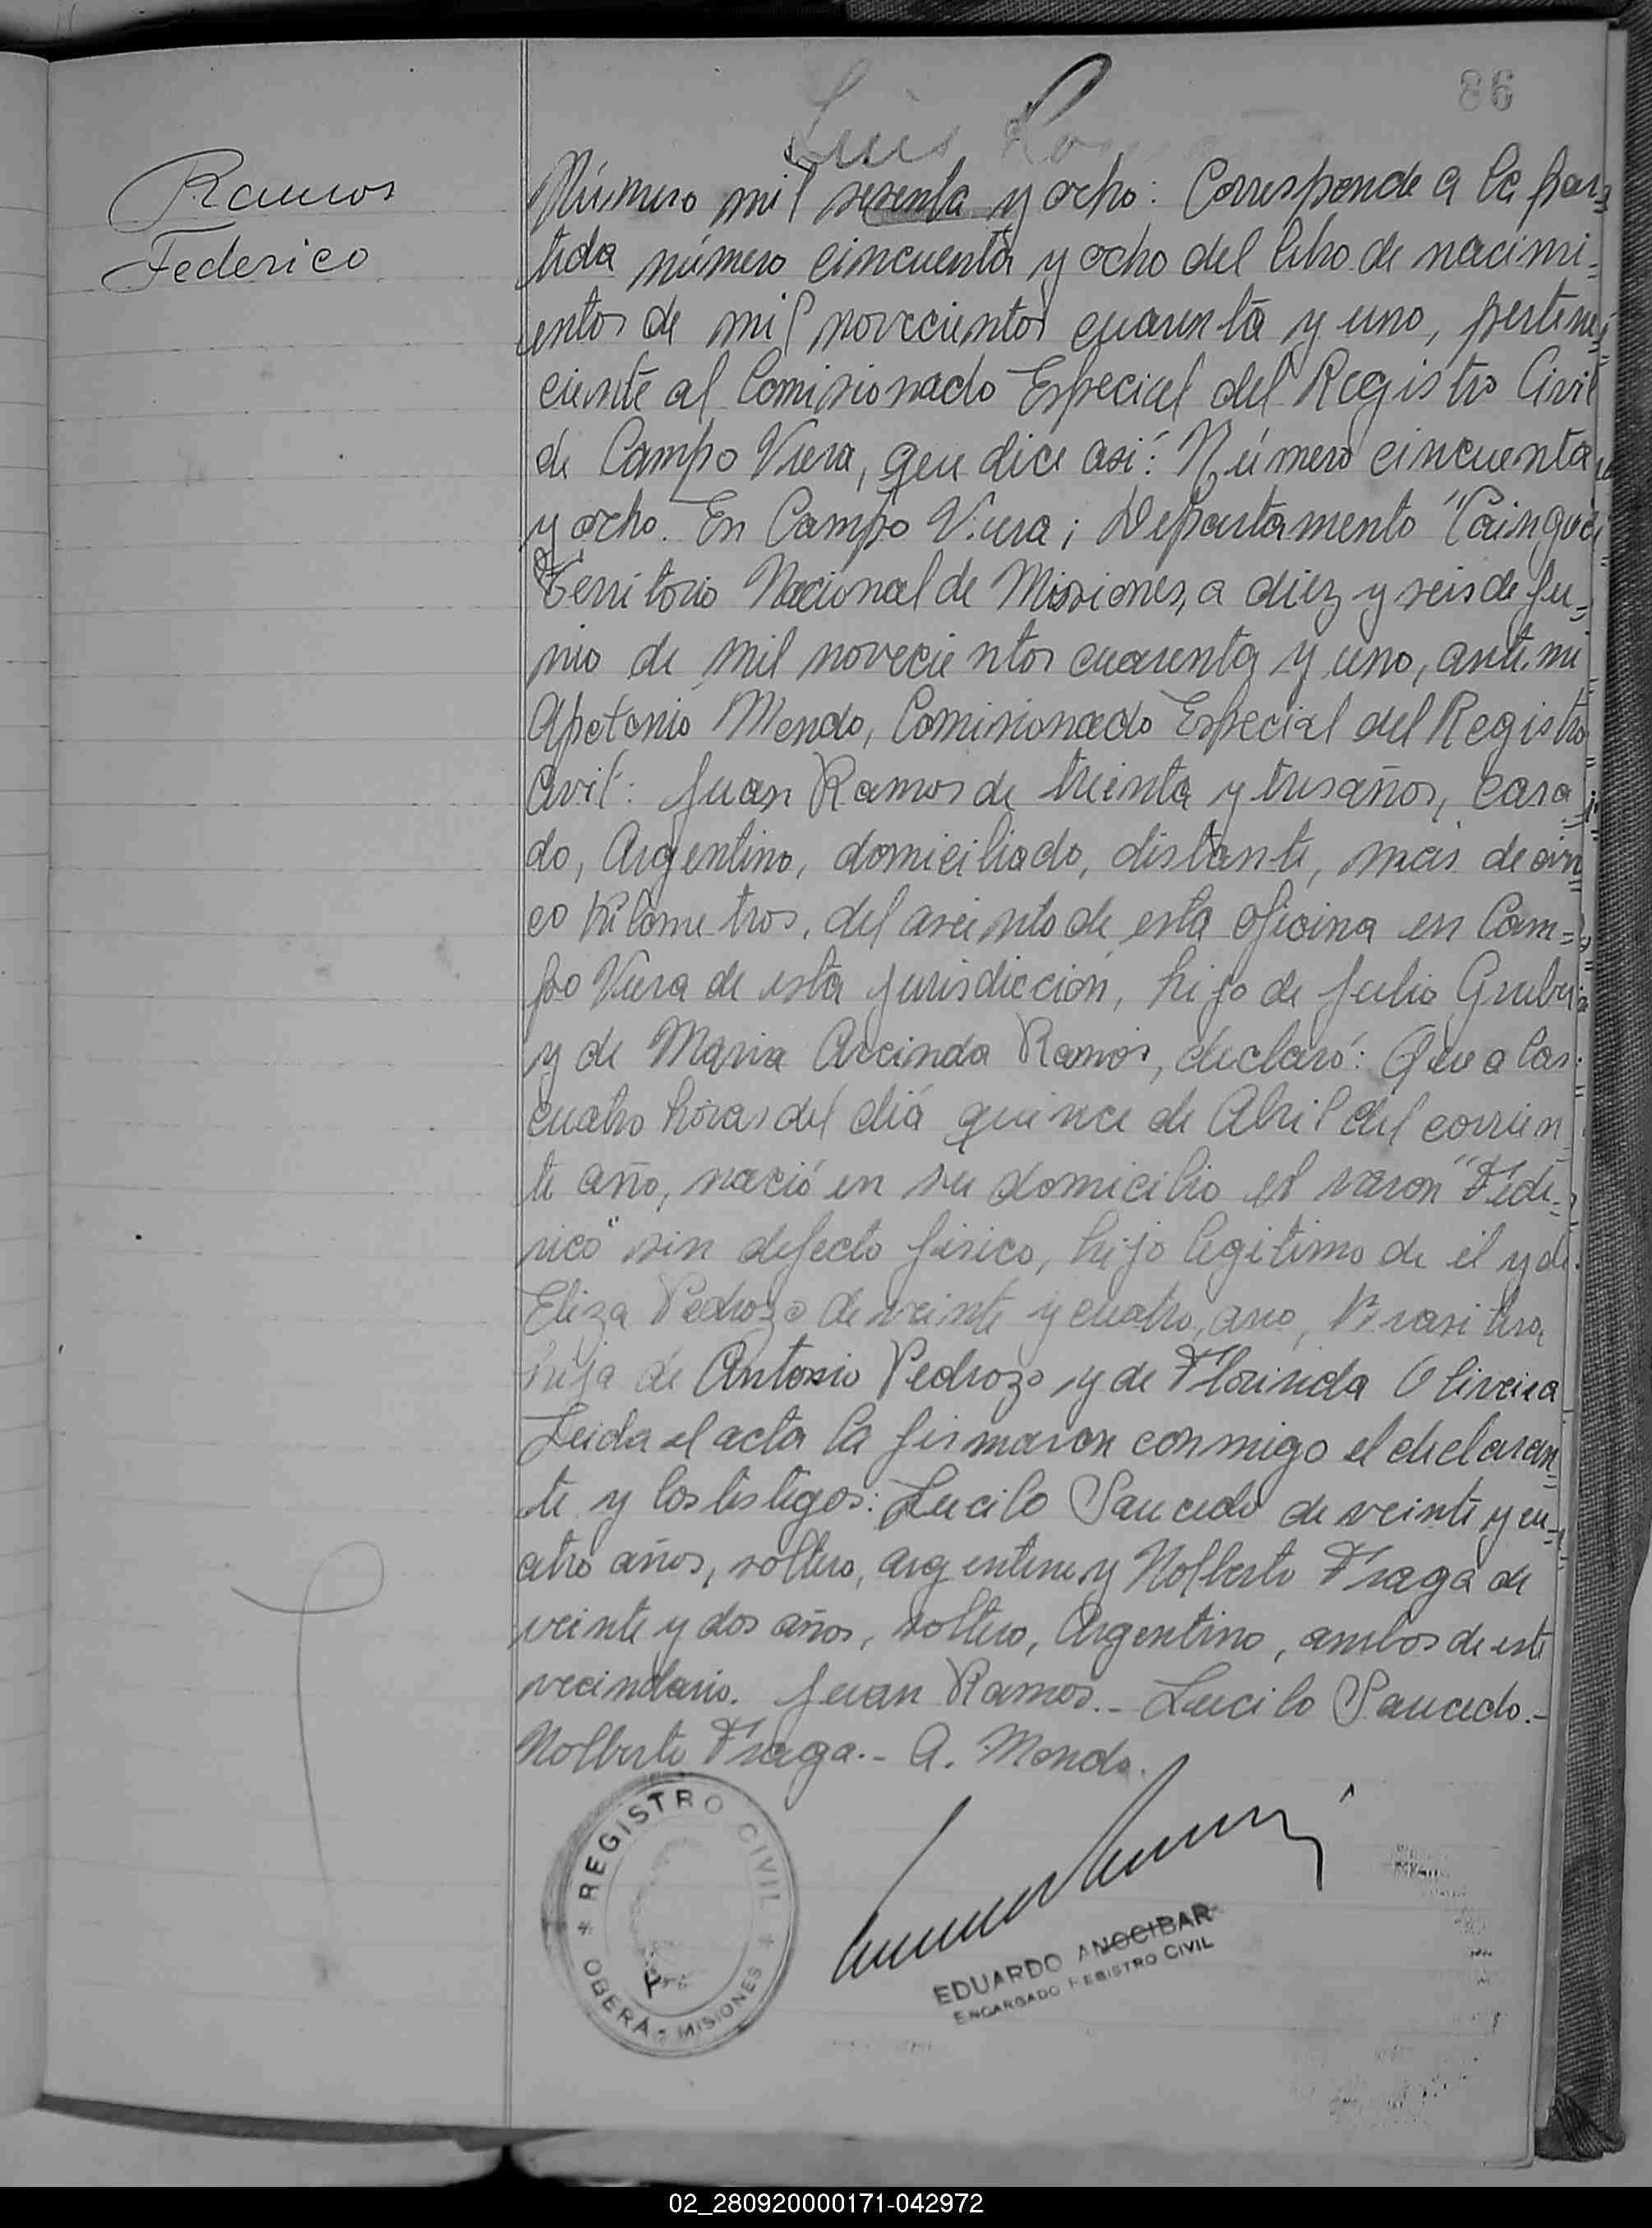 86
Luis
Ramos
Federico
Número mil sesenta y ocho: Corresponde a la par=
tida número cincuenta y ocho del libro de nacimi=
entos de mil novecientos cuarenta y uno, pertene=
ciente al Comisionado Especial del Registro Civil
de Campo Viera, que dice asi: Número cincuenta
y ocho. En Campo Viera; Departamento "Cainguas
Territorio Nacional de Misiones, a diez y seis de Ju=
nio de mil novecientos cuarenta y uno, ante mi
Apotonio Mendo, Comisionado Especial del Registro
Civil: Juan Ramos de treinta y tres años, casa
do, Argentino, domiciliado, distante, mas de cin
co Kilometros, del asiento de esta oficina en Cam=
po Viera de esta jurisdicción, hijo de Julio Gruber
y de Maria Arcinda Ramos, declaró: Que a las
cuatro horas del diá quince de Abril del corrien
te año, nació en su domicilio el varon "Fede=
rico" sin defecto fisico, hijo legitimo de él y de
Eliza Pedrozo de veinte y cuatro, ano, Brasilera,
hija de Antonio Pedrozo y de Florinda Oliveira
Leida el acta la firmaron conmigo el declaran=
te y los testigos: Lucilo Saucedo de veinte y cu=
atro años, soltero, argentino y Nolberto Fraga de
veinte y dos años, soltero, Argentino, ambos de este
vecindario. Juan Ramos.- Lucilo Saucedo.-
Nolberto Fraga.- A. Mendo.
REGISTRO CIVIL
OBERÁ - MISIONES
EDUARDO ANOCIBAR
ENCARGADO REGISTRO CIVIL
02_280920000171-042972